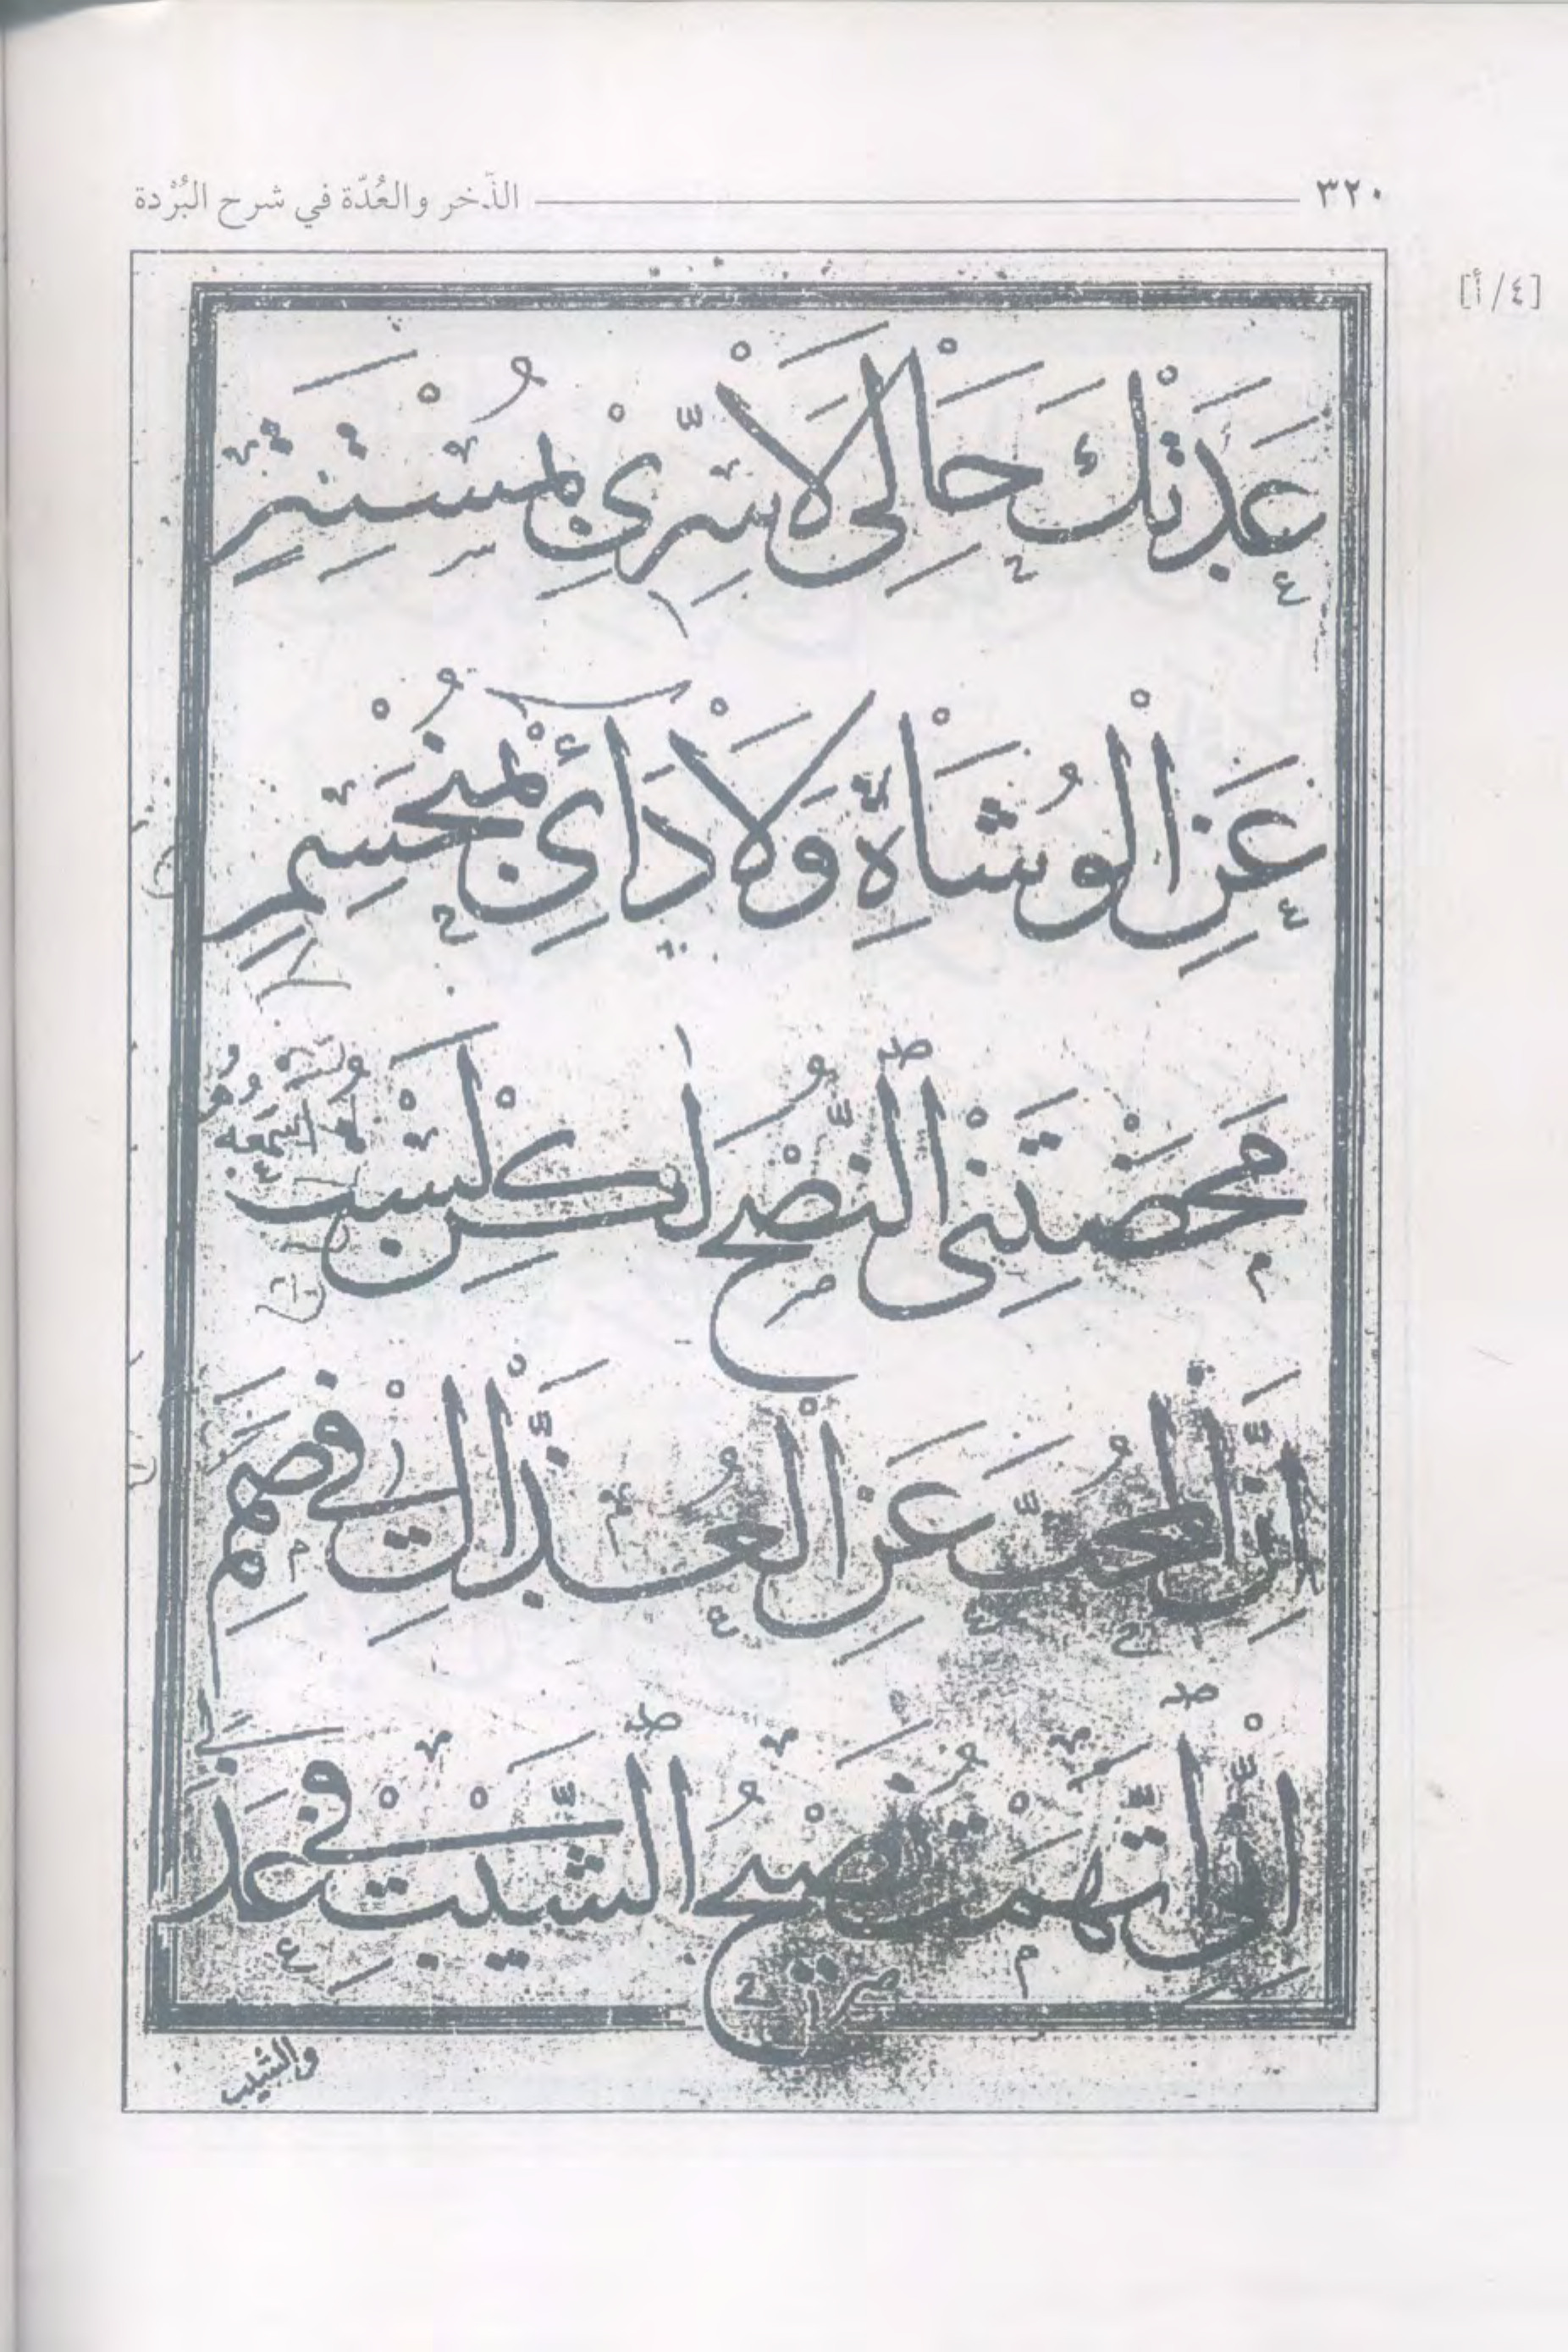 ٣٢٠ الذّخر والعُدّة في شرح البُرْدة
[٤/أ]
عَدَتْكَ حَالِي لَا سِرِّيْ بِمُسْتَتِرٍ
عَنِ الْوُشَاةِ وَلَا دَائِيْ بِمُنْحَسِمِ
مَحَضْتَنِيْ النُّصْحَ لٰكِنْ لَسْتُ أَسْمَعُهُ
اِنَّ الْمُحِبَّ عَنِ الْعُذَّالِ فِيْ صَمَمِ
اِنِّي اتَّهَمْتُ نَصِيْحَ الشَّيْبِ فِيْ عَذَلِي
والشيب